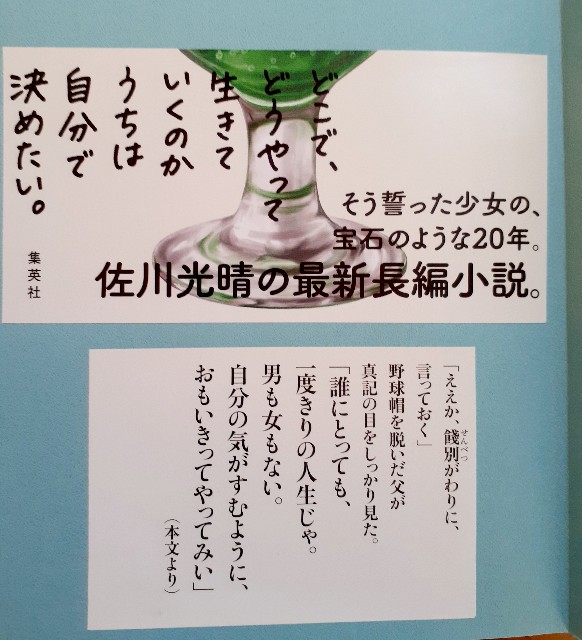 どこで、
どうやって
生きて
いくのか
うちは
自分で
決めたい。
そう誓った少女の、
宝石のような20年。
佐川光晴の最新長編小説。
集英社
「ええか、餞別がわりに、
せんべつ
言っておく」
野球帽を脱いだ父が
真記の目をしっかり見た。
「誰にとっても、
一度きりの人生じゃ。
男も女もない。
自分の気がすむように、
おもいきってやってみい」
(本文より)